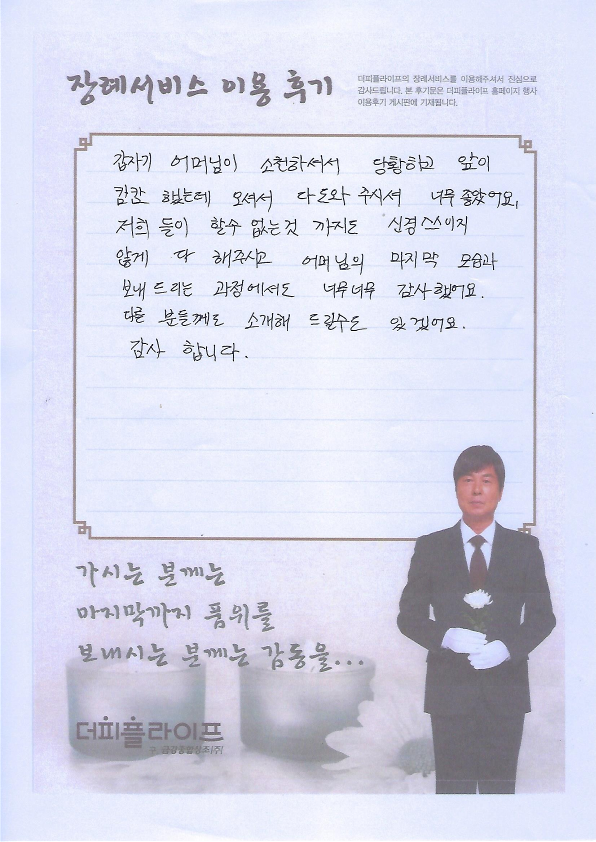 장례서비스 이용 후기
더피플라이프의 장례서비스를 이용해주셔서 진심으로
감사드립니다. 본 후기문은 더피플라이프 홈페이지 행사
이용후기 게시판에 기재됩니다.
갑자기 어머님이 소천하셔서 당황하고 앞이
캄캄 했는데 오셔서 다 도와 주시셔 너무 좋았어요.
저희 들이 할수 없는것 까지도 신경 쓰이지
않게 다 해주시고 어머님의 마지막 모습과
보내 드리는 과정에서도 너무너무 감사했어요.
다른 분들께도 소개해 드릴수도 있겠어요.
감사 합니다.
가시는 분께는
마지막까지 품위를
보내시는 분께는 감동을...
더피플라이프
구. 금강종합상조(주)